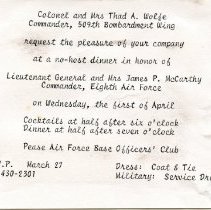 Colonel and Mrs Thad A. Wolfe
Commander, 509th Bombardment Wing
request the pleasure of your company
at a no-host dinner in honor of
Lieutenant General and Mrs James P. McCarthy
Commander, Eighth Air Force
on Wednesday, the first of April
Cocktails at half after six o'clock
Dinner at half after seven o'clock
Pease Air Force Base Officers' Club
.V.P. March 27 Dress: Coat & Tie
430-2301 Military: Service Dre